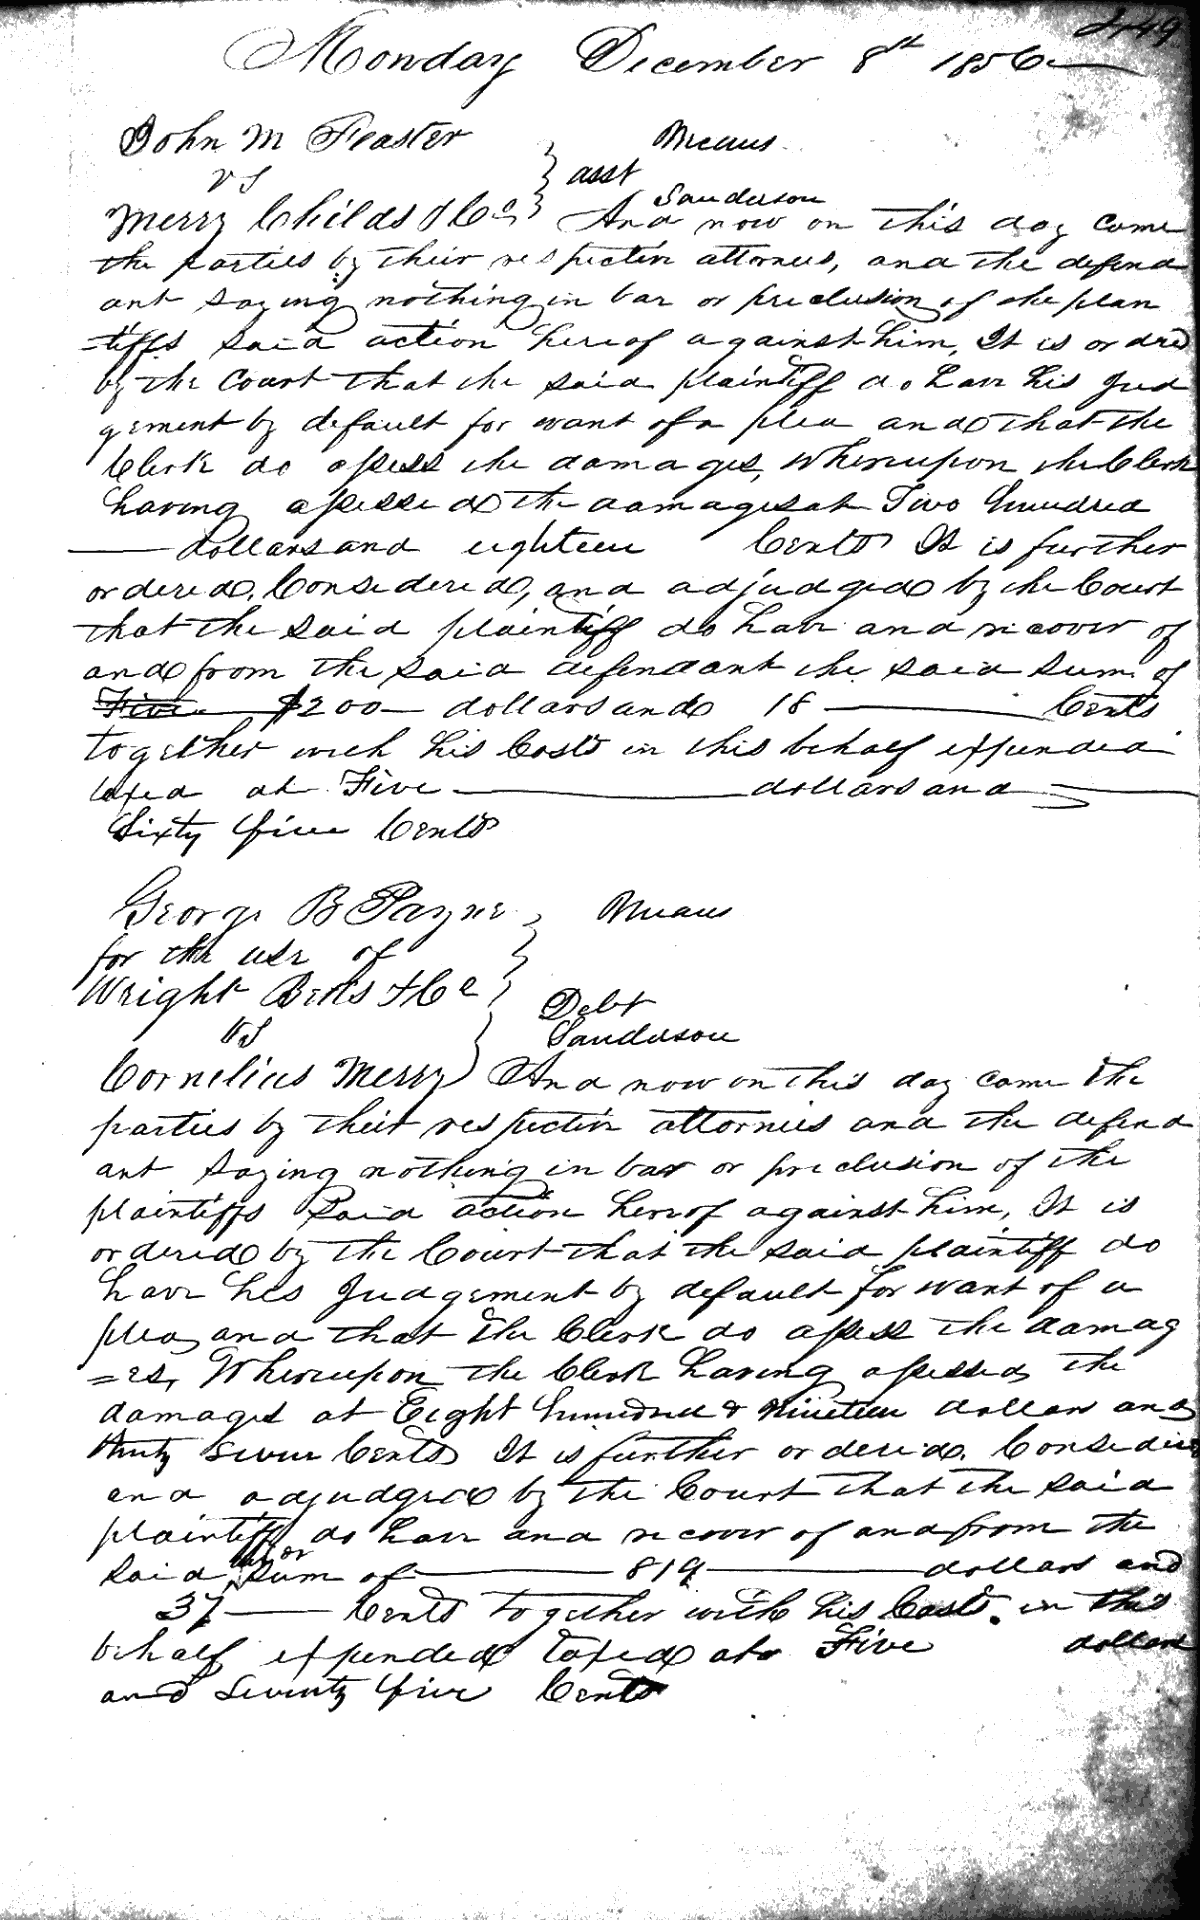 449
Monday December 8th 1856
John M Feaster
Means
vs
asst
Sanderson
Merry Childs & Co And now on this day came
the parties by their respective attornies, and the defend
ant saying nothing in bar or preclusion of the plan
=tiffs said action hereof against him, It is ordred
by the Court that the said plaintiff do have his Jud
gement by default for want of a plea and that the
Clerk do assess the damages, Whereupon the Clerk
having assessed the damages at Two hundred
dollars and eighteen Cents It is further
ordered, Considered, and adjudged by the Court
that the said plaintiff do have and recover of
and from the said defendant the said sum of
Five $200 dollars and 18 Cents
together with his Costs in this behalf expended
taxed at Five dollars and
Sixty five Cents
George B Payne
Means
for the use of
Wright Betts & Co
Debt
vs
Sanderson
Cornelius Merry And now on this day came the
parties by their respective attornies and the defend
ant saying nothing in bar or preclusion of the
plaintiffs said action hereof against him, It is
ordered by the Court that the said plaintiff do
have his Judgement by default for want of a
plea, and that the Clerk do assess the damag
=es, Whereupon the Clerk having assessed the
damages at Eight hundred & Nineteen dollars and
thirty seven Cents It is further ordered, Considered
and adjudged by the Court that the said
plaintiff do have and recover of and from the
said sum of 819 dollars and
37 Cents together with his Costs in this
behalf expended taxed at Five dollars
and Seventy five Cents